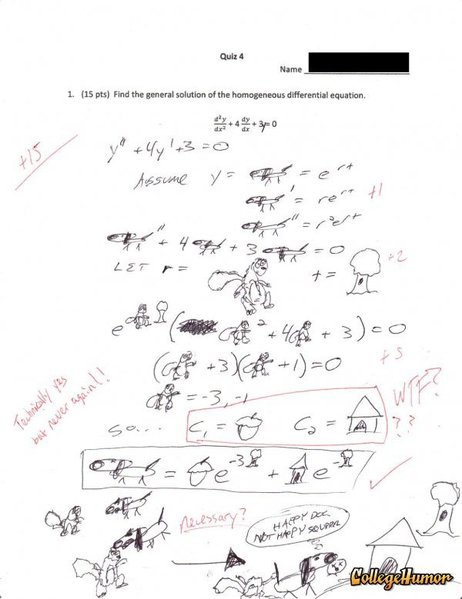 Quiz 4
Name
1. (15 pts) Find the general solution of the homogeneous differential equation.
d²y/dx² + 4 dy/dx + 3y = 0
+15
y'' + 4y' + 3 = 0
ASSUME y = = e^rt
' = re^rt
+1
'' = r²e^rt
'' + 4 ' + 3 = 0
LET r = t =
+2
e ( ² + 4 + 3) = 0
( + 3)( + 1) = 0
+5
= -3, -1
WTF?
??
Technically yes
but never again!!
SO... C₁ = C₂ =
= e^-3 + e^-
Necessary?
HAPPY DOG
NOT HAPPY SQUIRREL
CollegeHumor